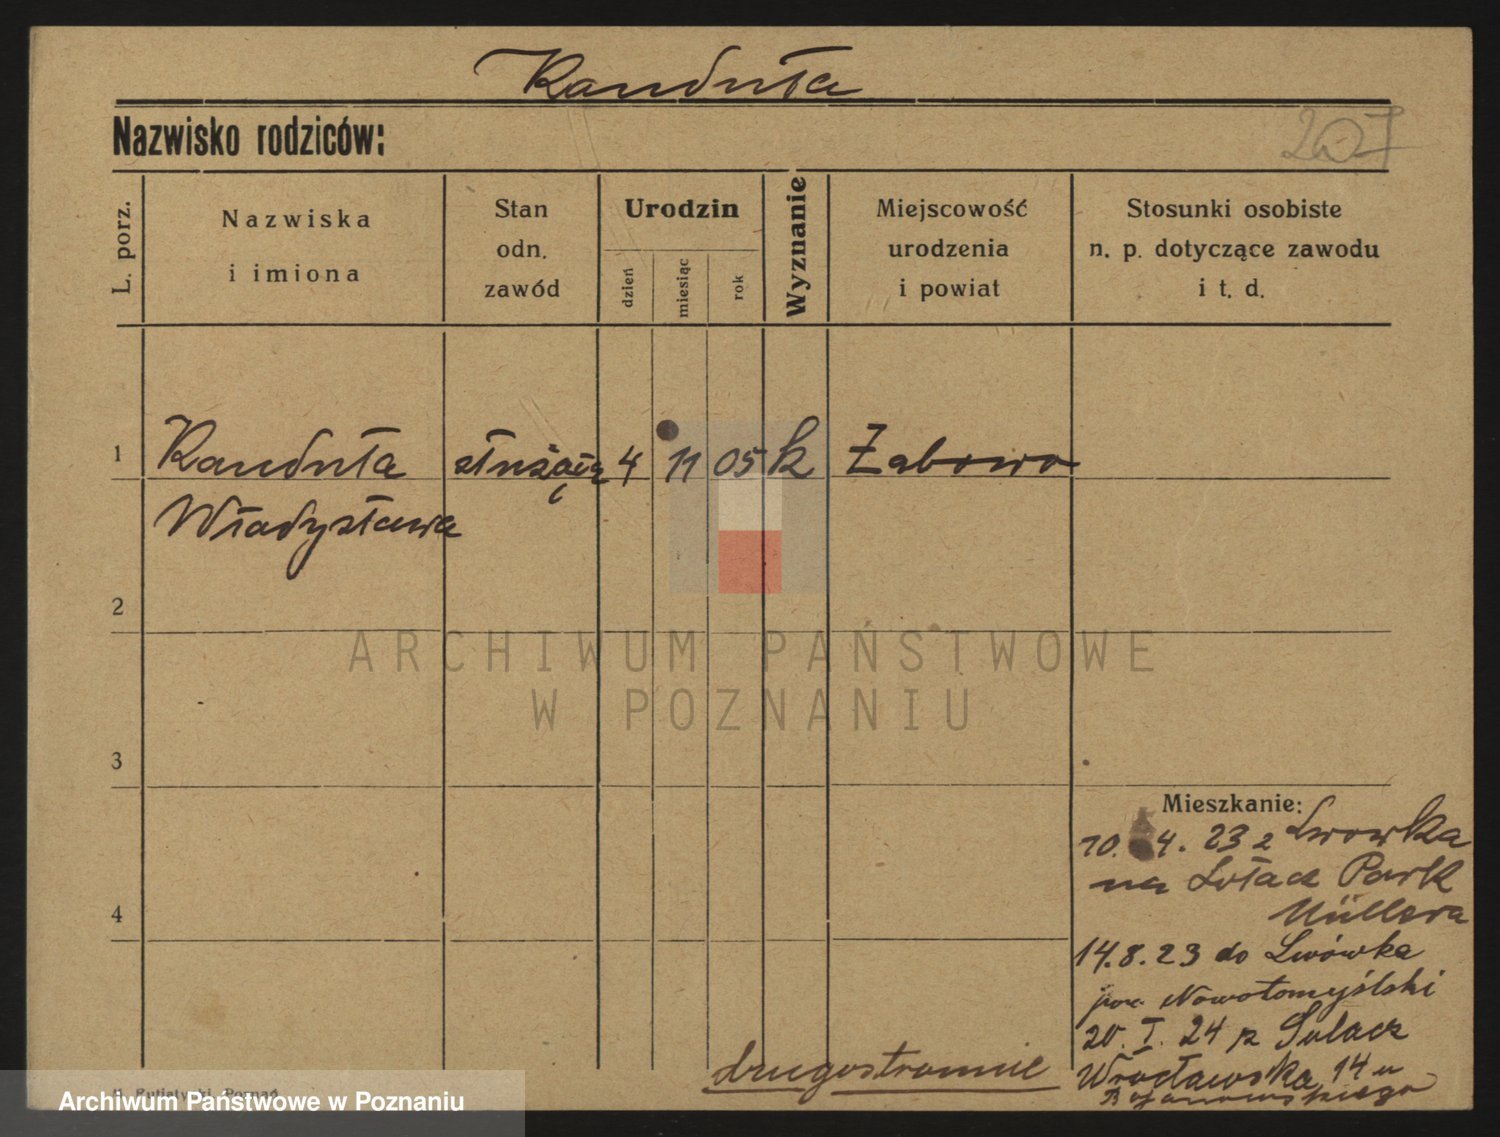 Kanduła
Nazwisko rodziców:
207
L. porz.
Nazwiska
i imiona
Stan
odn.
zawód
Urodzin
dzień
miesiąc
rok
Wyznanie
Miejscowość
urodzenia
i powiat
Stosunki osobiste
n. p. dotyczące zawodu
i t. d.
1 Kanduła służąca 4 11 05 k Zabowo
Władysława
2
ARCHIWUM PAŃSTWOWE
W POZNANIU
3
Mieszkanie:
10. 4. 23 z Lwowka
na Sołacz Park
Müllera
4
14.8.23 do Lwówka
pow. Nowotomyślski
20. I. 24 z Solacz
Wrocławska 14 u
Bojanowskiego
drugostronnie
Poznań
Archiwum Państwowe w Poznaniu